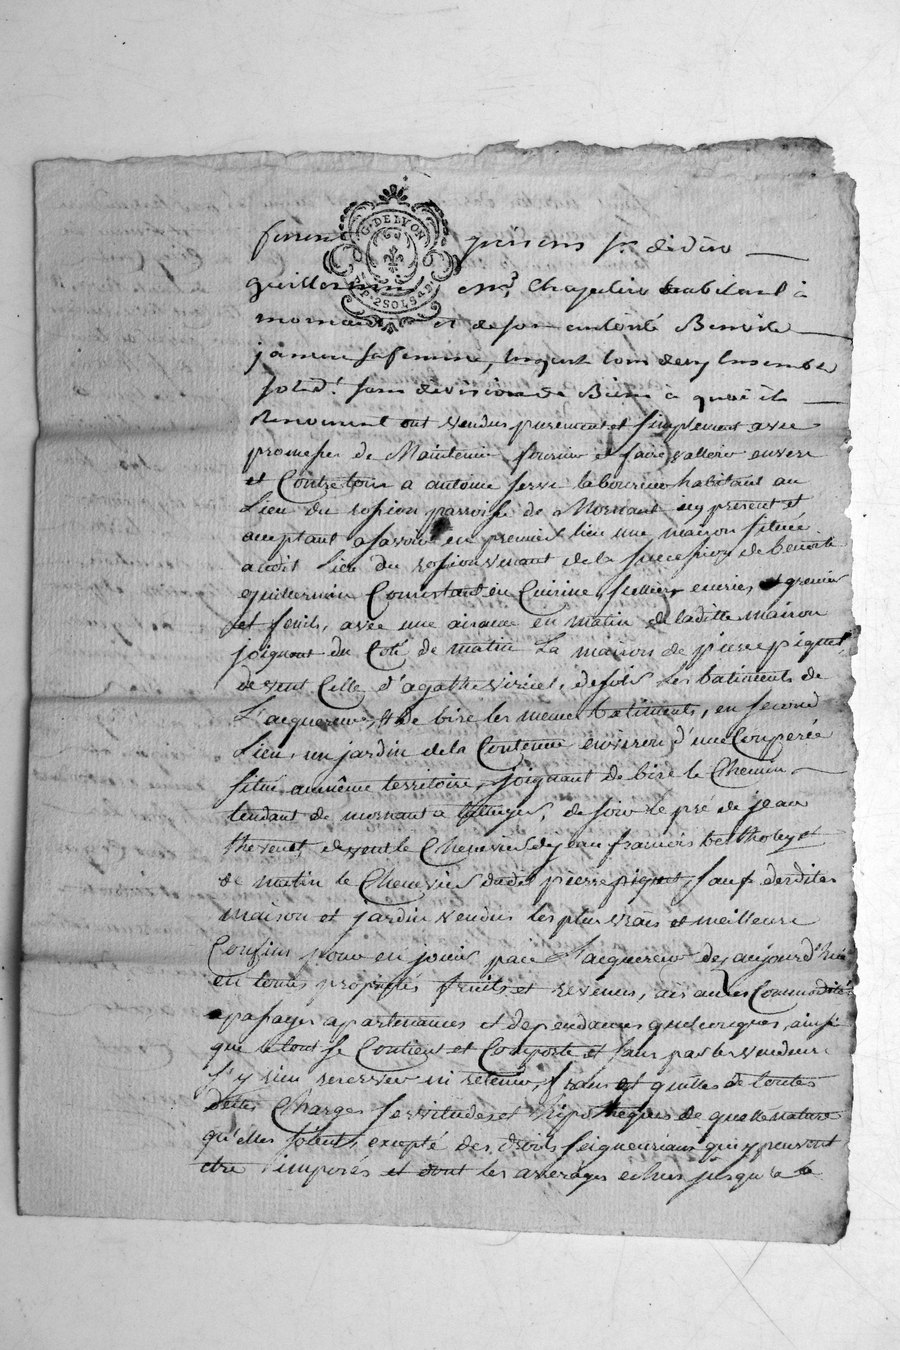 furent presens Sr. didier
G. DE LYON
P.P. 2 SOLS 4 D.
guillermin Mre. Chapelier habitant à
mornant et de son autorité Benoite
sa femme, lesquels tous deux Ensemble
solid.t sans division de Biens à quoi ils
Renoncent ont vendus purement et simplement avec
promesses de Maintenir fournir et faire valloir envers
et Contre tous a antoine serve laboureur habitant au
Lieu du rosson parroisse de Mornant icy present et
acceptant a savoir en premier lieu une maison située
audit Lieu du rosson venant de la succession de benoite
Consistant en Cuisine, ecuries et grenier
et fenil, avec une aisance en matin de laditte maison
joignant du Coté de matin La maison de pierre piquet,
de vent Celle d'agathe viricel, de soir Les batiments de
L'acquereur, et de bize les memes batiments, en second
Lieu, un jardin de la Contenue environ d'une Couperée
situé au même territoire, joignant de bize le Chemin
tendant de mornant a, de soir le pré de jean
thevenet, de vent le Chenevier de jean francois bertholet et
de matin le Chenevier dudit pierre piquet, sauf desdites
maison et jardin vendus les plus vrais et meilleurs
Confins pour en jouir par L'acquereur des aujourd'hui
en toutes propriétés fruits et revenus, aisances Commodités
passages apartenances et dependances quelconques, ainsi
que le tout se Contient et Comporte et sans par les vendeurs
s'y rien reserver ni retenir, francs et quittes de toutes
dettes Charges servitudes et hipotheques de quelle nature
qu'elles soient, excepté des droits seigneuriaux qui y peuvent
etre imposés et dont les arrerages echus jusqu'a ce